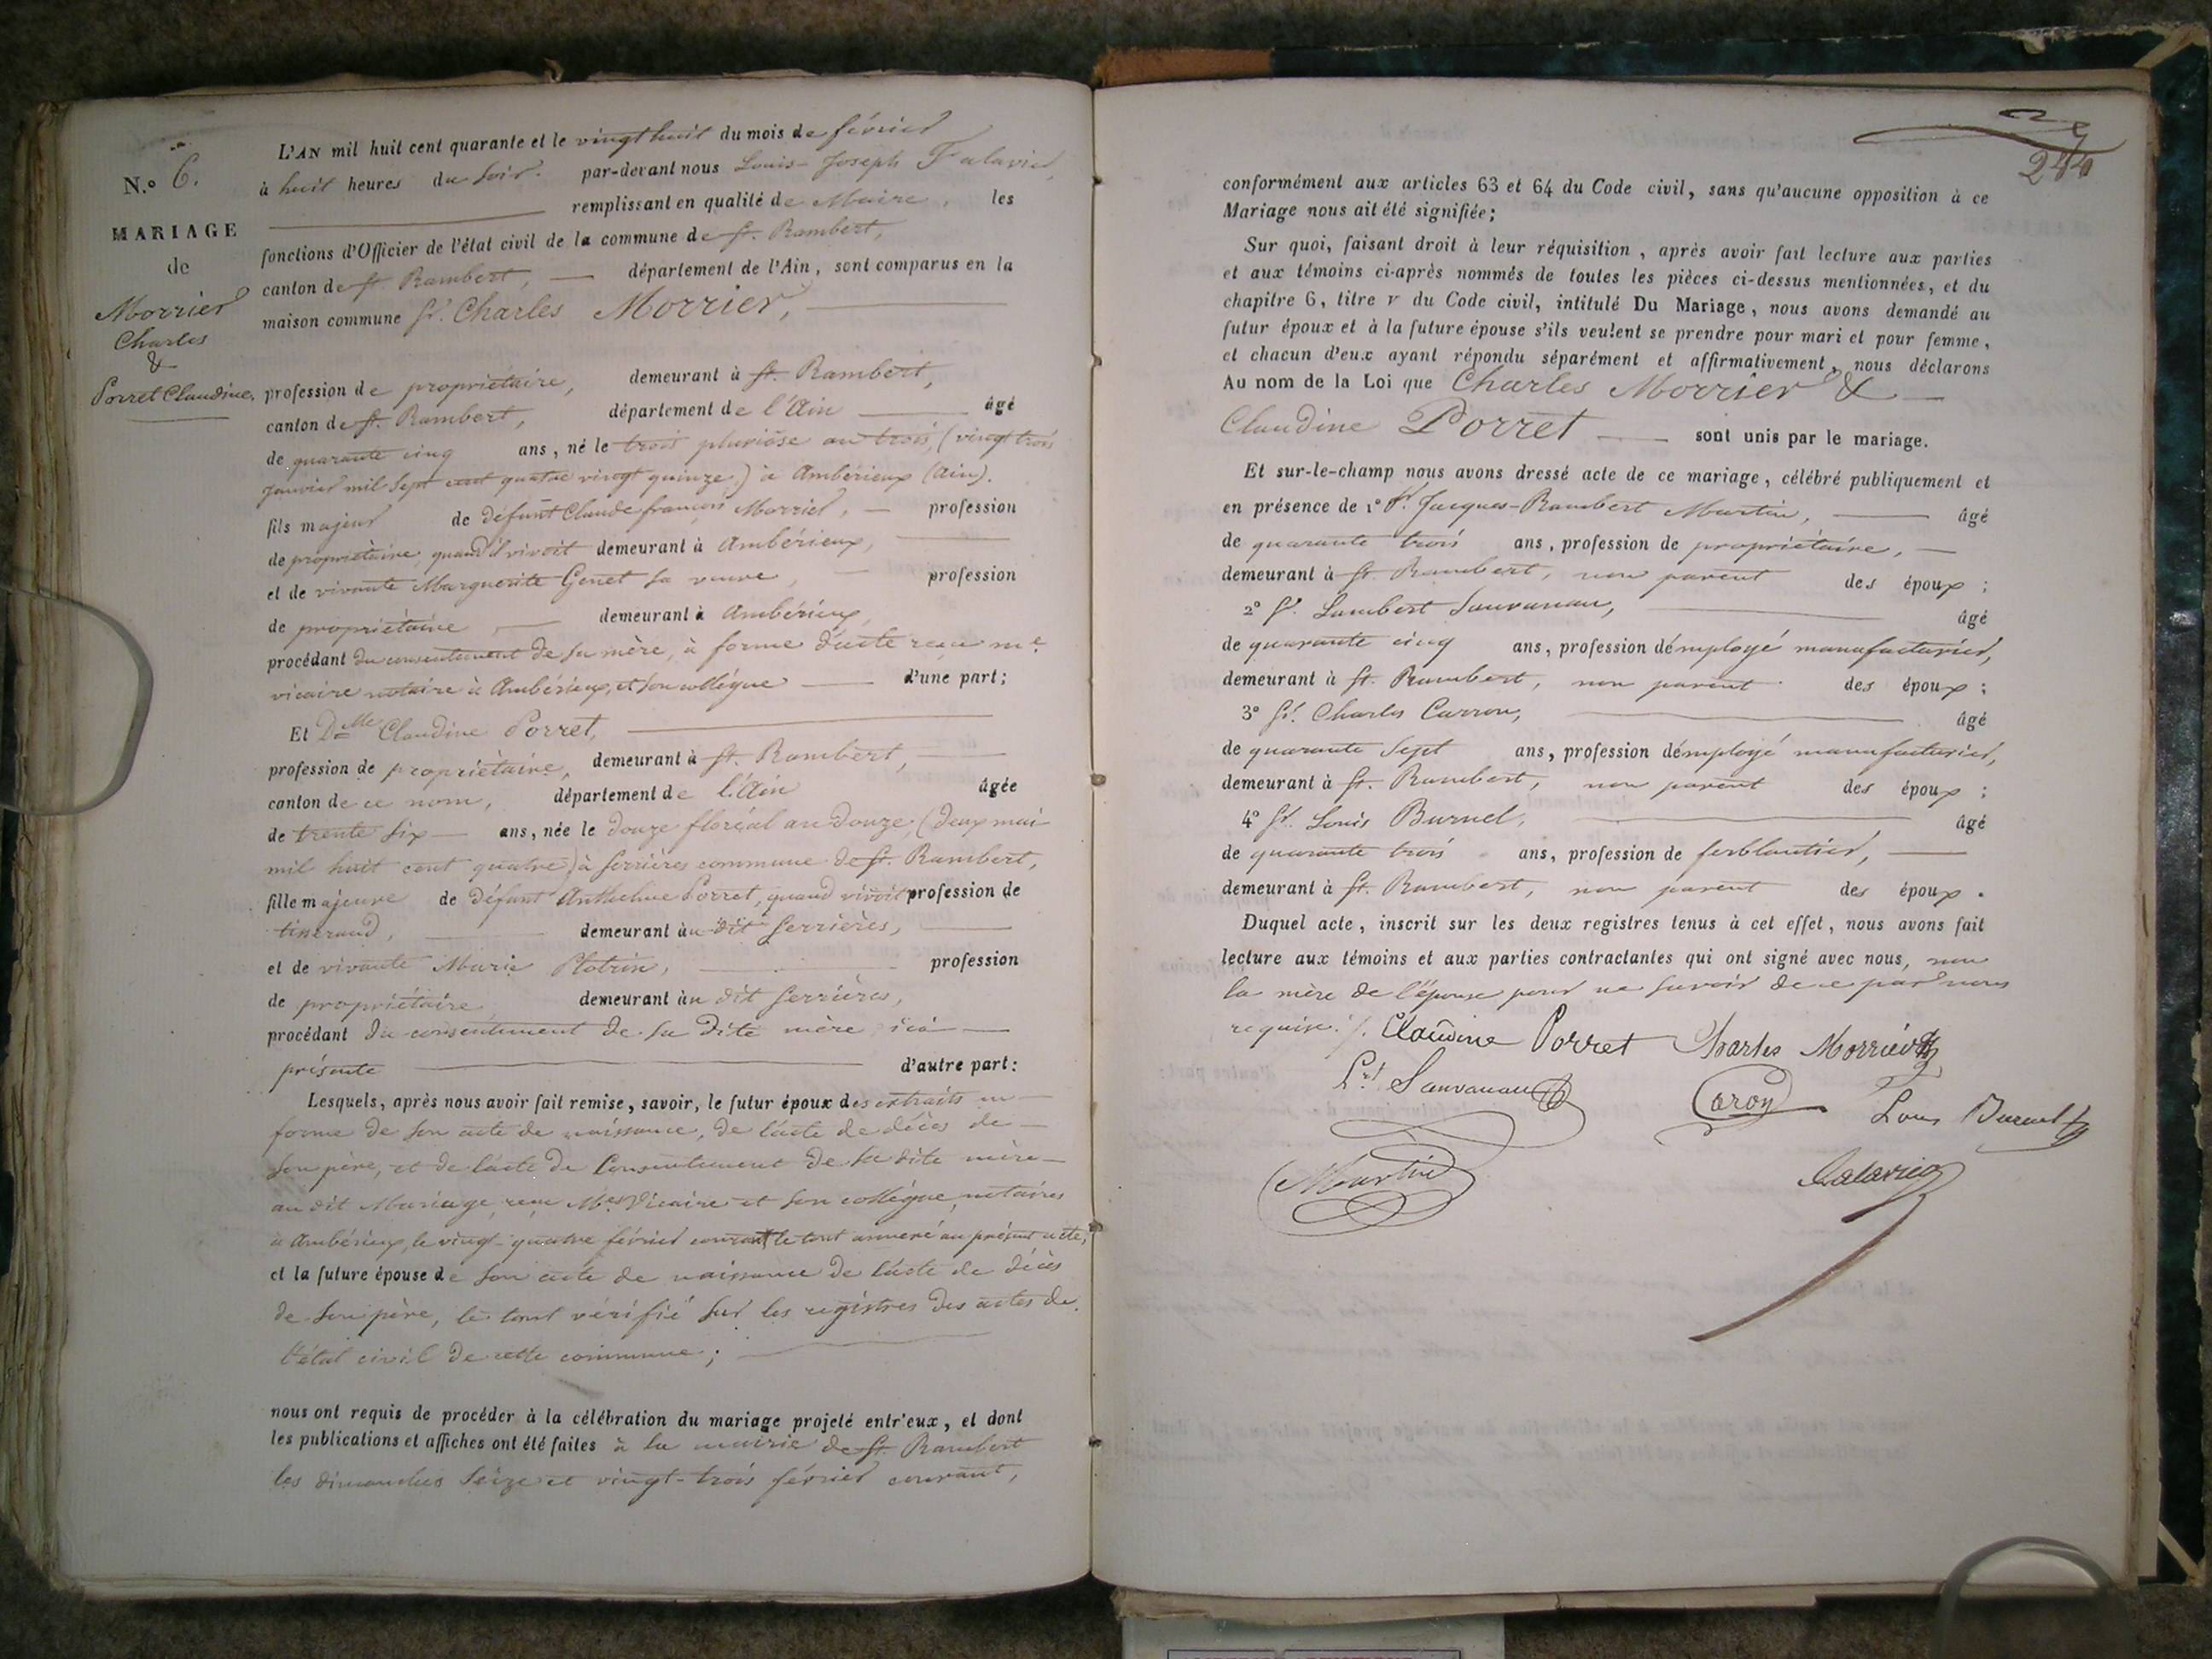 N.o 6.
MARIAGE
de
Morrier
Charles
&
Porret Claudine
L'AN mil huit cent quarante et le vingt huit du mois de février
à huit heures du soir. par-devant nous Louis-Joseph Falavier,
remplissant en qualité de Maire, les
fonctions d'Officier de l'état civil de la commune de St. Rambert,
canton de St. Rambert, département de l'Ain, sont comparus en la
maison commune Sr. Charles Morrier,
profession de propriétaire, demeurant à St. Rambert,
canton de St. Rambert, département de l'Ain âgé
de quarante cinq ans, né le trois pluviôse an trois, (vingt trois
janvier mil sept cent quatre vingt quinze) à Ambérieux (Ain).
fils majeur de défunt Claude françois Morrier, profession
de propriétaire, quand il vivoit demeurant à Ambérieux,
et de vivante Marguerite Genet sa veuve, profession
de propriétaire, demeurant à Ambérieux,
procédant du consentement de sa mère, à forme d'acte reçu me
vicaire notaire à Ambérieux, et son collègue d'une part;
Et Dlle Claudine Porret,
profession de propriétaire, demeurant à St. Rambert,
canton de ce nom, département de l'Ain âgée
de trente six ans, née le douze floréal an douze (deux mai
mil huit cent quatre) à Serrières commune de St. Rambert,
fille majeure de défunt Anthelme Porret, quand vivoit profession de
tisserand, demeurant au dit Serrières,
et de vivante Marie Plotrin, profession
de propriétaire demeurant au dit Serrières,
procédant du consentement de sa dite mère ici
présente d'autre part:
Lesquels, après nous avoir fait remise, savoir, le futur époux des extraits en
forme de son acte de naissance, de l'acte de décès de
son père, et de l'acte de Consentement de sa dite mère
au dit Mariage, reçu Mes Vicaire et son collègue, notaires
à Ambérieux, le vingt-quatre février courant le tout annexé au présent acte;
et la future épouse de son acte de naissance de l'acte de décès
de son père, le tout vérifié sur les registres des actes de
l'état civil de cette commune;
nous ont requis de procéder à la célébration du mariage projeté entr'eux, et dont
les publications et affiches ont été faites à la mairie de St. Rambert
les dimanches seize et vingt-trois février courant,
244
conformément aux articles 63 et 64 du Code civil, sans qu'aucune opposition à ce
Mariage nous ait été signifiée;
Sur quoi, faisant droit à leur réquisition, après avoir fait lecture aux parties
et aux témoins ci-après nommés de toutes les pièces ci-dessus mentionnées, et du
chapitre 6, titre v du Code civil, intitulé Du Mariage, nous avons demandé au
futur époux et à la future épouse s'ils veulent se prendre pour mari et pour femme,
et chacun d'eux ayant répondu séparément et affirmativement, nous déclarons
Au nom de la Loi que Charles Morrier &
Claudine Porret sont unis par le mariage.
Et sur-le-champ nous avons dressé acte de ce mariage, célébré publiquement et
en présence de 1° Sr. Jacques-Rambert Martin, âgé
de quarante trois ans, profession de propriétaire,
demeurant à St. Rambert, non parent des époux;
2° Sr. Lambert Sauvanau, âgé
de quarante cinq ans, profession d'employé manufacturier,
demeurant à St. Rambert, non parent des époux;
3° Sr. Charles Carron, âgé
de quarante sept ans, profession d'employé manufacturier,
demeurant à St. Rambert, non parent des époux;
4° Sr. Louis Burnel, âgé
de quarante trois ans, profession de ferblantier,
demeurant à St. Rambert, non parent des époux.
Duquel acte, inscrit sur les deux registres tenus à cet effet, nous avons fait
lecture aux témoins et aux parties contractantes qui ont signé avec nous, non
la mère de l'épouse pour ne savoir de ce par nous
requise ./. Claudine Porret Charles Morrier
Lrt Sauvanau Caron Louis Burnel
Martin Falavier